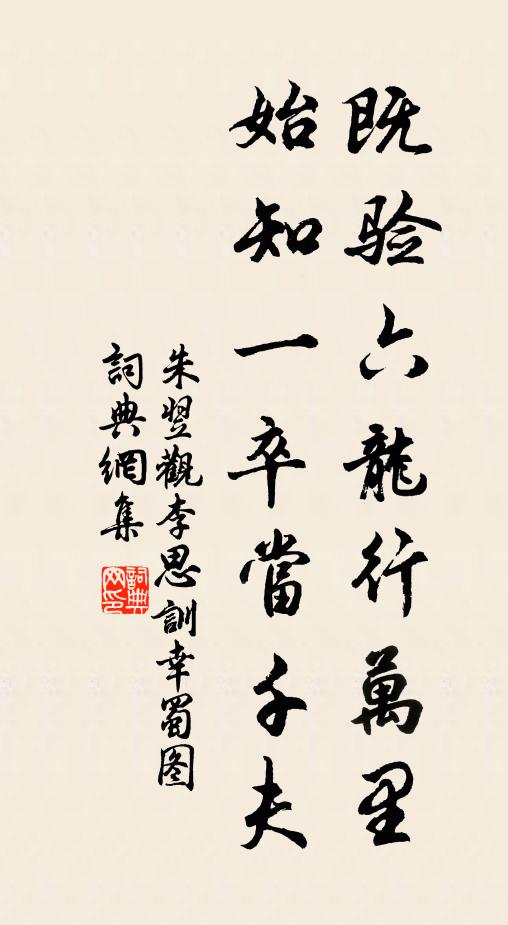 既验六龍行萬里
始知一卒當千夫
朱翌觀李思訓幸蜀图
詞典網集
詞典网印